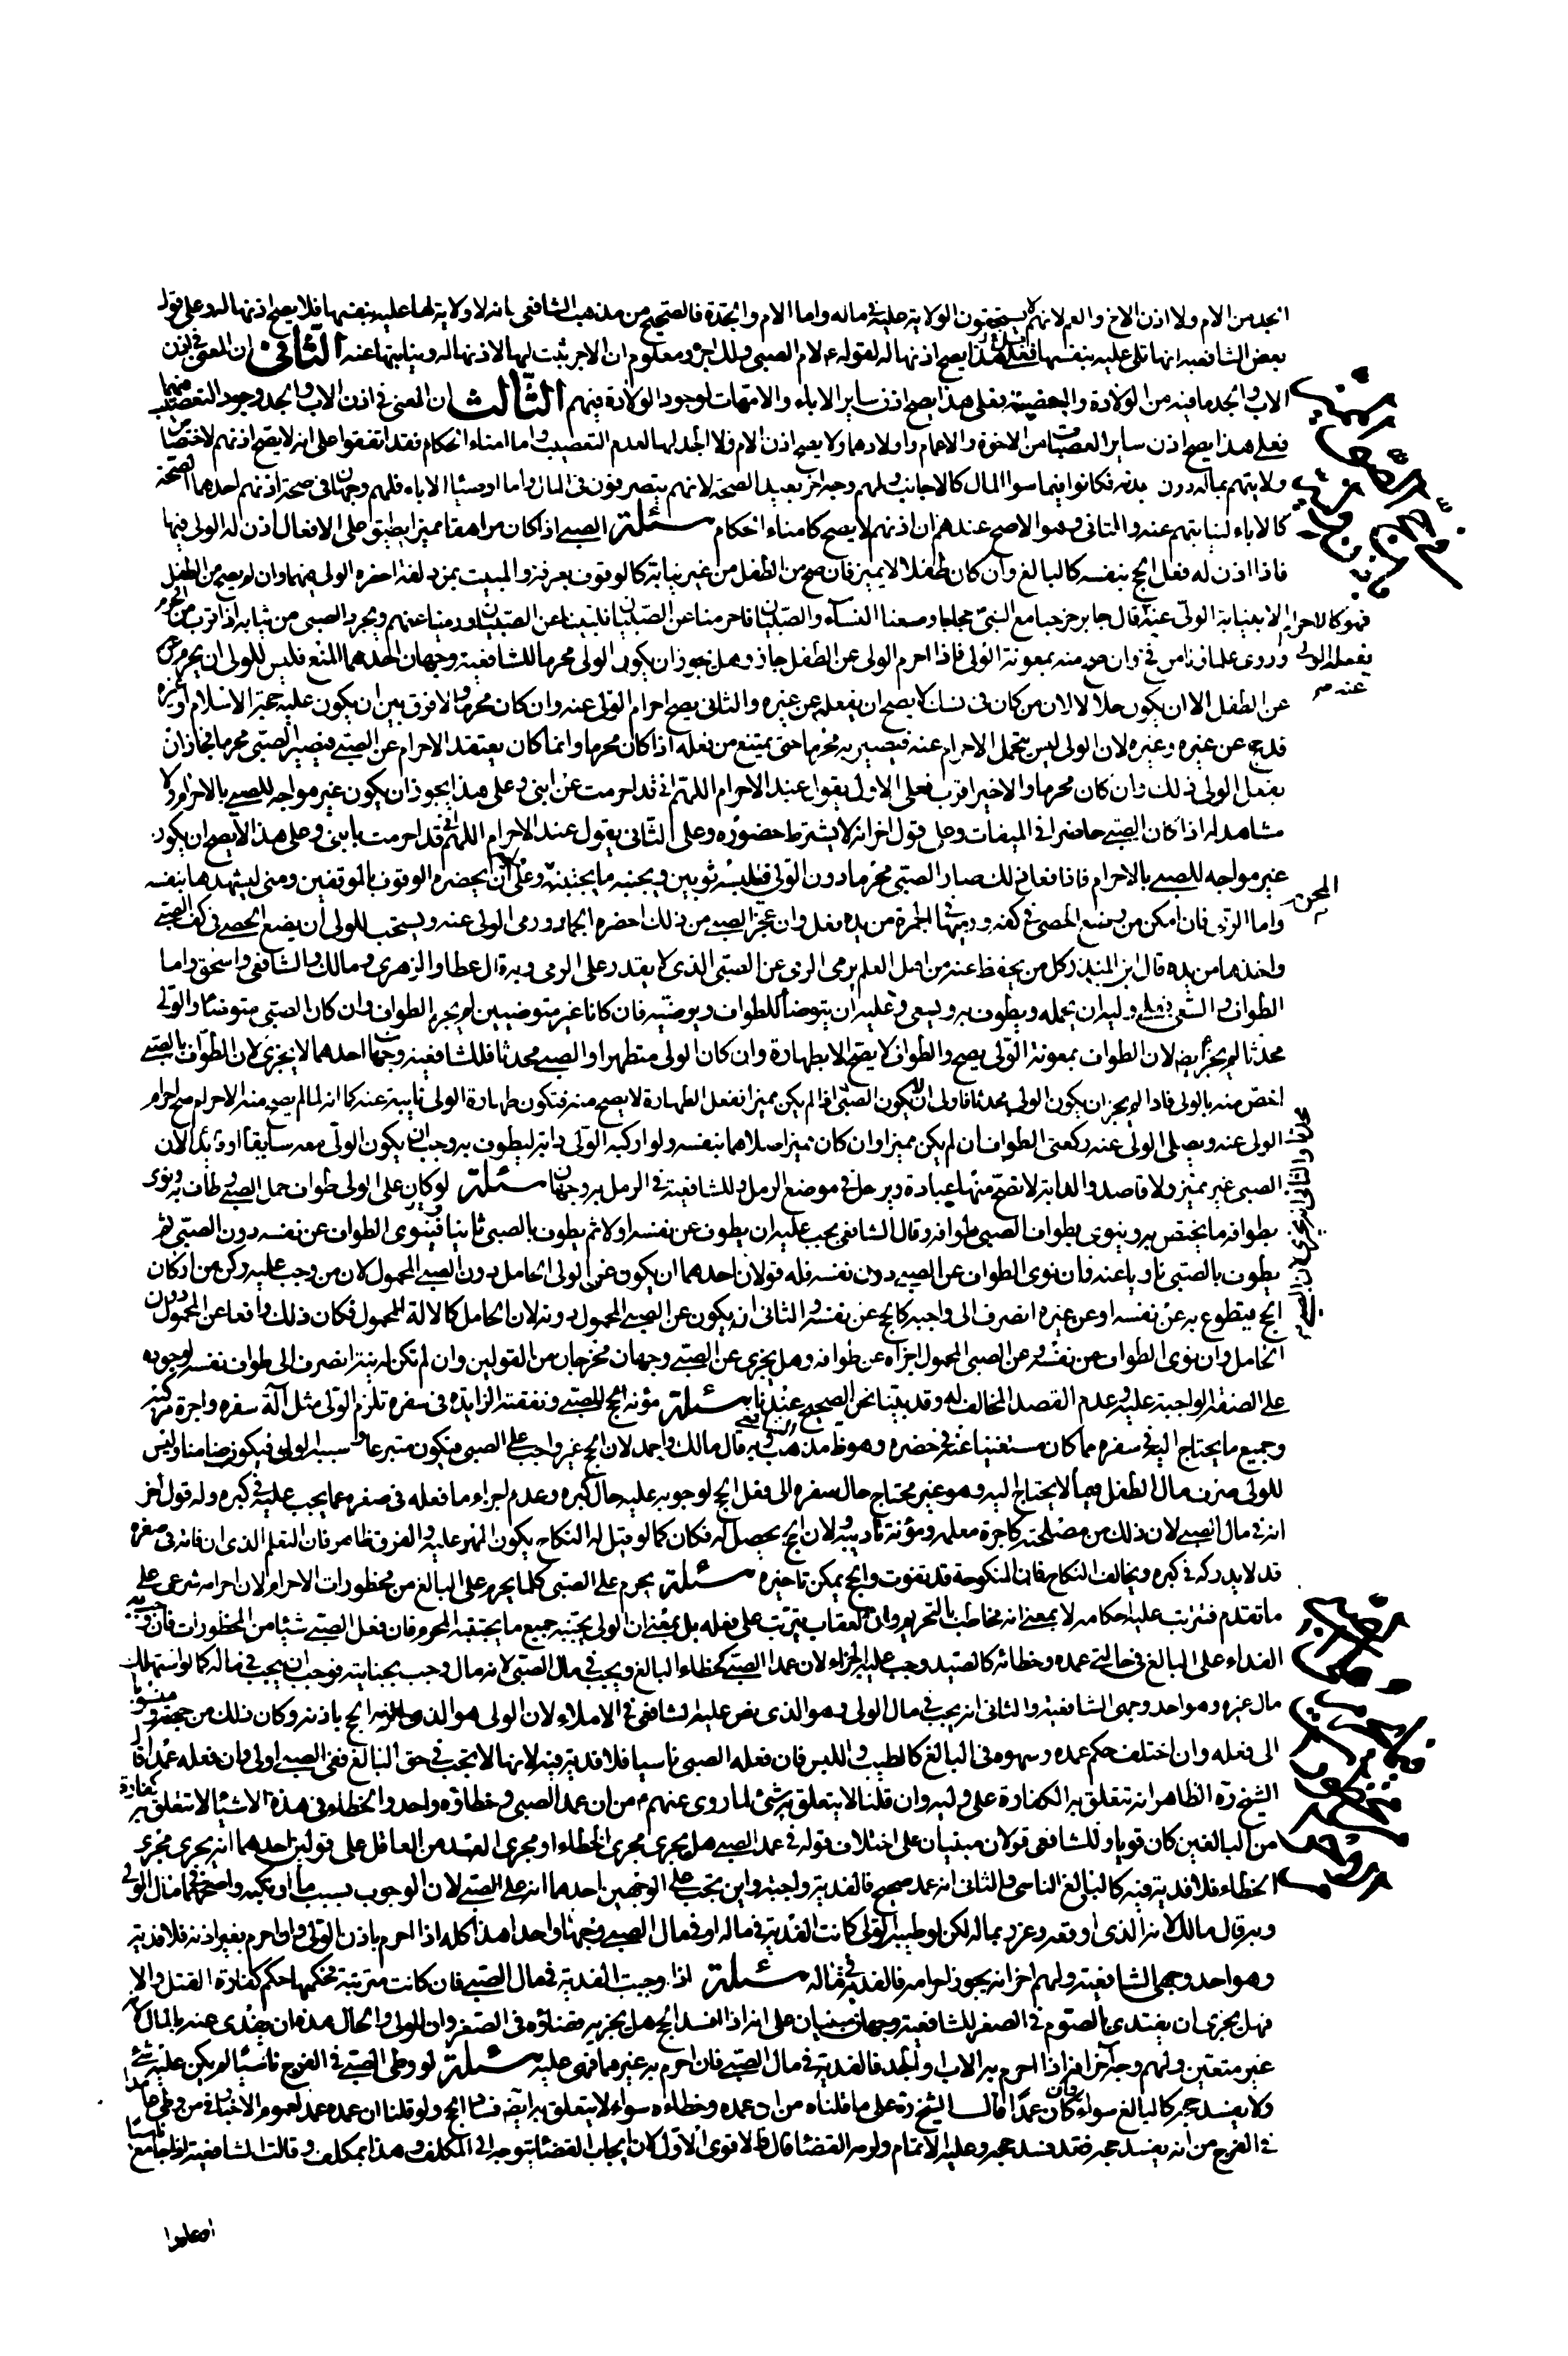 الجد من الام ولا اذن الاخ والعم لانهم لا يستحقون الولاية عليه في ماله واما الام والجدة فالصحيح من مذهب الشافعي بانه لا ولاية لها عليه بنفسها فلا يصح اذنها له وعلى قول
بعض الشافعية انها تلي عليه بنفسها فعلى هذا يصح اذنها له لقوله ع لام الصبي ولك اجره ومعلوم ان الاجر يثبت لها لاذنها له ونيابتها عنه الثاني ان المعنى في اذن
الاب والجد ما فيه من الولادة والبعضية فعلى هذا يصح اذن ساير الاباء والامهات لوجود الولادة فيهم الثالث ان المعنى في اذن الاب والجد وجود التعصيب منهما
فعلى هذا يصح اذن ساير العصبات من الاخوة والاعمام واولادهما ولا يصح اذن الام ولا الجد لها لعدم التعصيب واما امناء الحكام فقد اتفقوا على انه لا يصح اذنهم لاختصاص
ولايتهم بماله دون بدنه فكانوا فيما سوا المال كالاجانب ولهم وجه اخر بعيد الصحة لانهم يتصرفون في المال واما اوصياء الاباء فلهم وجهان في صحة اذنهم احدهما الصحة
كالاباء لنيابتهم عنه والثاني وهو الاصح عندهم ان اذنهم لا يصح كامناء الحكام مسئلة الصبي اذا كان مراهقا مميزا يطيق على الافعال اذن له الولي فيها
فاذا اذن له فعل الحج بنفسه كالبالغ وان كان طفلا لا يميز فان صح من الطفل من غير نيابة كالوقوف بعرفة والمبيت بمزدلفة احضره الولي فيهما وان لم يصح من الطفل
فهو كالاحرام الا بنيابة الولي عنه قال جابر خرجنا مع النبي حجاجا ومعنا النساء والصبيان فاحرمنا عن الصبيان فلبينا عن الصبيان ورمينا عنهم ويجرد الصبي من ثيابه اذا قرب من الحرم
يفعله الولي وروى علماؤنا من فخ وان صح منه بمعونة الولي فاذا احرم الولي عن الطفل جاز وهل يجوز ان يكون الولي محرما للشافعية وجهان احدهما المنع فليس للولي ان يحرم
عن الطفل الا ان يكون حلالا لان من كان في نسك لا يصح ان يفعله عن غيره والثاني يصح احرام الولي عنه وان كان محرما ولا فرق بين ان يكون عليه حجة الاسلام او غيره
قد حج عن غيره وغيره لان الولي ليس يتحمل الاحرام عنه فيصير به محرما حتى يمتنع من فعله اذا كان محرما وانما كان يعتقد الاحرام عن الصبي فيصير الصبي محرما فجاز ان
يفعل الولي ذلك وان كان محرما والاخير اقرب فعلى الاول يقول عند الاحرام اللهم اني قد احرمت عن ابني وعلى هذا يجوز ان يكون غير مواجه للصبي بالاحرام ولا
مشاهد له اذا كان الصبي حاضرا في الميقات وعلى قول اخر انه لا يشترط حضوره وعلى الثاني يقول عند الاحرام اللهم اني قد احرمت بابني وعلى هذا لا يصح ان يكون
غير مواجه للصبي بالاحرام فاذا فعل ذلك صار الصبي محرما دون الولي فيلبسه ثوبين ويجنبه ما يجتنبه المحرم وعلى ان يحضره الوقوف بالموقفين ومنى ليشهدها بنفسه
واما الرمي فان امكن من وضع الحصى في كفه ورميها في الجمرة من يده فعل وان عجز الصبي من ذلك احضره الجمار ورمى الولي عنه ويستحب للولي ان يضع الحصى في كف الصبي
واخذها من يده قال ابن المنذر كل من يحفظ عنه من اهل العلم يرمى الرمي عن الصبي الذي لا يقدر على الرمي وبه قال عطا والزهري ومالك والشافعي واسحق واما
الطواف والسعي فعلى وليه ان يحمله ويطوف به ويسعى وعليه ان يتوضأ للطواف ويوضيه فان كانا غير متوضيين لم يجز الطواف وان كان الصبي متوضئا والولي
محدثا لم يجز ايضا لان الطواف بمعونة الولي يصح والطواف لا يصح الا بطهارة وان كان الولي متطهرا والصبي محدثا فللشافعية وجهان احدهما لا يجزي لان الطواف بالصبي
اخص منه بالولي فاذا لم يجز ان يكون الولي محدثا فاولى ان لا يكون الصبي اذا لم يكن مميزا ففعل الطهارة لا يصح منه فتكون طهارة الولي نايبة عنه كما انه لما لم يصح منه الاحرام صح احرام
الولي عنه ويصلي الولي عنه ركعتي الطواف ان لم يكن مميزا وان كان مميزا صلاهما بنفسه ولو اركبه الولي دابة ليطوف به وجب ان يكون الولي معه سايقا او قائدا لان
الصبي غير مميز ولا قاصد والدابة لا تصح منها عبادة ويرمل في موضع الرمل وللشافعية في الرمل به وجهان مسئلة لو كان على الولي طواف حمل الصبي وطاف به ونوى
بطوافه ما يختص به وينوي بطواف الصبي طوافه وقال الشافعي يجب عليه ان يطوف عن نفسه اولا ثم يطوف بالصبي ثانيا فينوي الطواف عن نفسه دون الصبي ثم
يطوف بالصبي ناويا عنه فان نوى الطواف عن الصبي دون نفسه فله قولان احدهما ان يكون عن الولي الحامل دون الصبي المحمول لان من وجب عليه ركن من اركان
الحج فتطوع به عن نفسه او عن غيره انصرف الى واجبه كالحج عن نفسه والثاني انه يكون عن الصبي المحمول دونه لان الحامل كالالة للمحمول فكان ذلك واقعا عن المحمول دون
الحامل وان نوى الطواف عن نفسه وعن الصبي المحمول اجزاه عن طوافه وهل يجزي عن الصبي وجهان مخرجان من القولين وان لم تكن له نية انصرف الى طواف نفسه لوجوبه
على الصفة الواجبة عليه وعدم القصد المخالف له وقد بينا نحن الصحيح عندنا مسئلة مؤنة حج الصبي ونفقته الزايدة في سفره تلزم الولي مثل آلة سفره واجرة مركبه
وجميع ما يحتاج اليه في سفره مما كان مستغنيا عنه في حضره وهو ظ مذهب الشافعي وبه قال مالك واحمد لان الحج غير واجب على الصبي فيكون متبرعا وسببه الولي فيكون ضامنا وليس
للولي صرف مال الطفل فيما لا يحتاج اليه وهو غير محتاج حال سفره الى فعل الحج لوجوبه عليه حال كبره وعدم اجزاء ما فعله في صغره عما يجب عليه في كبره وله قول اخر
انه في مال الصبي لان ذلك من مصلحته كاجرة معلمه ومؤنة تاديبه ولان الحج يحصل له فكان كما لو قبل له النكاح يكون المهر عليه والفرق ظاهر فان التعلم الذي ان فاته في صغره
قد لا يدركه في كبره ويخالف النكاح فان المنكوحة قد تفوت والحج يمكن تاخيره مسئلة يحرم على الصبي كلما يحرم على البالغ من محظورات الاحرام لان احرامه شرعي على
ما تقدم فترتب عليه احكامه لا بمعنى انه مخاطب بالتحريم وان العقاب يترتب على فعله بل بمعنى ان الولي يجنبه جميع ما يجتنبه المحرم فان فعل الصبي شيئا من المحظورات فان وجب به
الفداء على البالغ في حالتي عمده وخطائه كالصيد وجب عليه الجزاء لان عمد الصبي كخطاء البالغ ويجب في مال الصبي لانه مال وجب بجنايته فوجب ان يجب في ماله كما لو استهلك
مال غيره وهو احد وجهي الشافعية والثاني انه يجب في مال الولي وهو الذي نص عليه الشافعي في الاملاء لان الولي هو الذي الزمه الحج باذنه وكان ذلك من جهته ومنسوبا
الى فعله وان اختلف حكم عمده وسهوه في البالغ كالطيب واللبس فان فعله الصبي ناسيا فلا فدية فيه لانها لا تجب في حق البالغ ففي الصبي اولى وان فعله عمدا قال
الشيخ ره الظاهر انه تتعلق به الكفارة على وليه وان قلنا لا يتعلق به شئ لما روى عنهم ع من ان عمد الصبي وخطاؤه واحد والخطاء في هذه الاشياء لا تتعلق به كفارة
من البالغين كان قويا وللشافعي قولان مبنيان على اختلاف قوله في عمد الصبي هل يجري مجرى الخطاء او مجرى العمد من العاقل على قولين احدهما انه يجري مجرى
الخطاء فلا فدية فيه كالبالغ الناسي والثاني انه عمد صحيح فالفدية واجبة واين تجب على الوجهين احدهما انه على الصبي لان الوجوب بسبب ما ارتكبه واصحهما في مال الولي
وبه قال مالك لانه الذي اوقعه وغرر بماله لكن لو طيبه الولي كانت الفدية في ماله او في مال الصبي وجهان واحدا هذا كله اذا احرم باذن الولي وان احرم بغير اذنه فلا فدية
وهو احد وجهي الشافعية ولهم اخر انه يجوز احرامه فالفدية في ماله مسئلة اذا وجبت الفدية في مال الصبي فان كانت مترتبة فحكمها حكم كفارة القتل والا
فهل يجزي ان يفتدي بالصوم في الصغر للشافعية وجهان مبنيان على انه اذا افسد الحج هل يجزيه قضاؤه في الصغر وان الولي والحال هذه ان يفدي عنه بالمال لانه
غير متعين ولهم وجه اخر انه اذا احرم به الاب والجد فالفدية في مال الصبي فان احرم به غيرهما فهي عليه مسئلة لو وطئ الصبي في الفرج ناسيا لم يكن عليه شئ
ولا يفسد حجه كالبالغ سواء وان كان عمدا قال الشيخ ره على ما قلناه من ان عمده وخطاءه سواء لا يتعلق به ايضا فساد الحج ولو قلنا ان عمده عمد لعموم الاخبار في من وطئ عامدا
في الفرج من انه يفسد حجه فقد فسد حجه وعليه الاتمام ولزمه القضاء قال والاقوى الاول لان ايجاب القضاء يتوجه الى المكلف وهذا ليس بمكلف وقالت الشافعية اذا جامع ناسيا
او عامدا